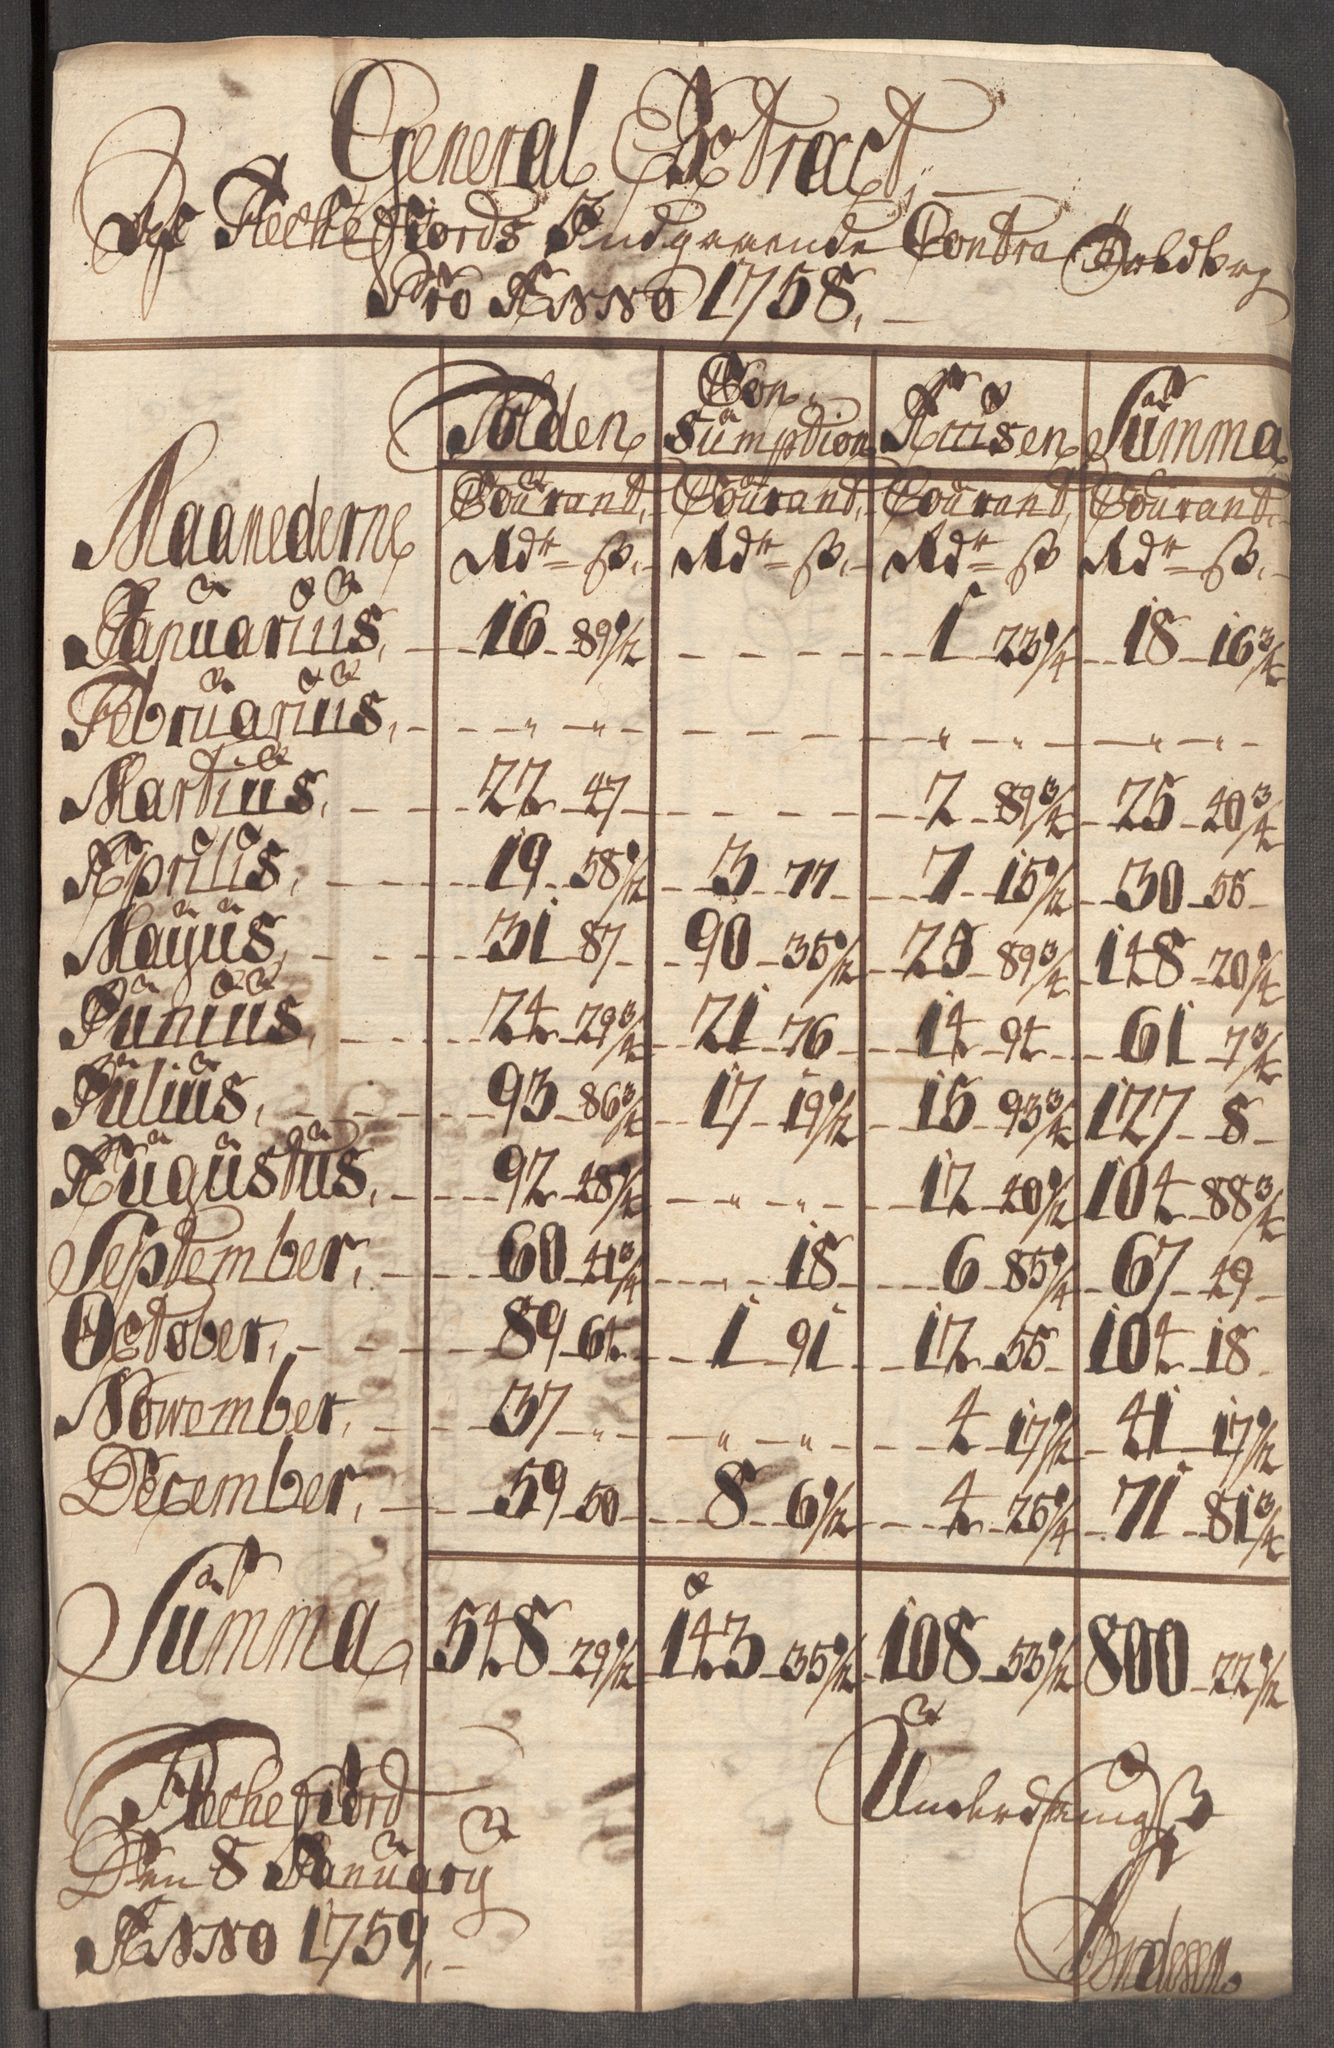 General Extract,
Flechefiords Indgaaende Contra
Pro Anno 1758.
Tolden Con- Sumption Accisen Summa
Maanederne Courant, Courant, Courant, Courant,
Rdr ß. Rdr ß. Rdr ß Rdr ß.
Januarius, 16 89½ 1 23¼ 18 16¾
Februarius, " " " " " "
Martius, 22 47 2 89¾ 25 40¾
Aprilis, 19 58½ 3 77 7 15½ 30 55
Mayus, 31 87 90 35½ 25 89¾ 148 20¼
Junius, 24 29¾ 21 76 14 94 61 7¾
Julius, 93 86¾ 17 19½ 15 93¾ 127 8
Augustus, 92 48¼ " " 12 40½ 104 88¾
September, 60 41¾ " 18 6 85¼ 67 49
October, 89 64 1 91 12 55 104 18
November, 37 " " " 4 17½ 41 17½
December, 59 50 8 6½ 4 25¼ 71 81¾
Summa, 548 29½ 143 35½ 108 53½ 800 22½
Flechefiord
Den 8 January
Anno 1759.
Underdanigst